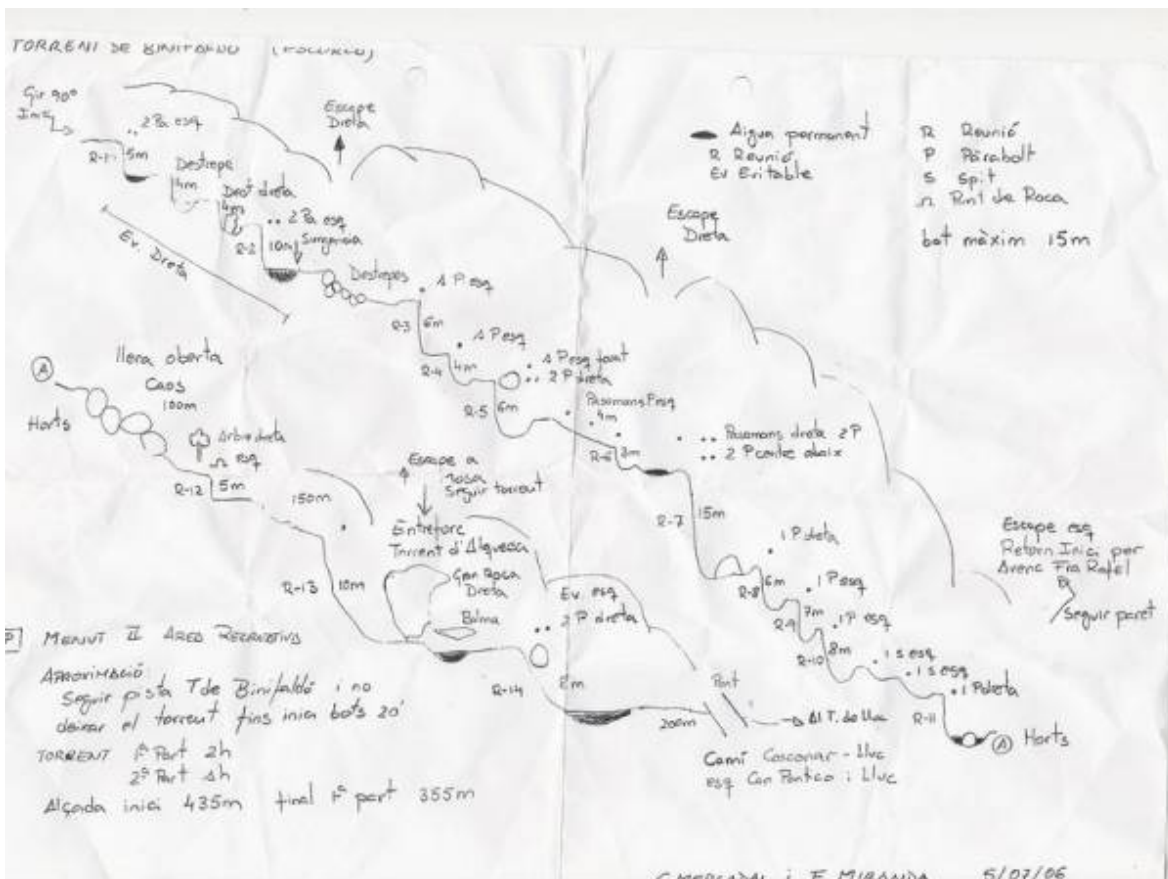 TORRENT DE BINIFALDÓ (ESCORCA)
Gir 90°
Inici
2 Pa esq
R-1 5m
Destrepe
4m
Dest dreta
4m
2 Pa esq
R-2 10m Surgencia
Ev. Dreta
Escape
Dreta
Destrepes
1 P esq
R-3 6m
1 P esq
R-4 4m
1 P esq
2 P dreta
R-5 6m
Pasamans P esq
4m
R-6 3m
Pasamans dreta 2P
2 P centre abaix
R-7 15m
1 P dreta
R-8 6m
1 P esq
R-9 7m
1 P esq
R-10 8m
1 S esq
1 S esq
1 P dreta
R-11
A Horts
Escape
Dreta
Aigua permanent
R Reunió
Ev Evitable
R Reunió
P Parabolt
S Spit
Pnt de Roca
bot màxim 15m
Escape esq
Retorn Inici per
Avenc Fra Rafel
Seguir paret
A
Horts
llera oberta
Caos
100m
Arbre dreta
esq
R-12 5m
150m
R-13 10m
Escape a
Seguir torrent
Entreforc
Torrent d'Alqueca
Gran Roca
Dreta
Balma
Ev. esq
2 P dreta
R-14 8m
200m
Pont
Al T. de Lluc
Camí Cosconar - Lluc
esq Can Pontico i Lluc
P MENUT II AREA RECREATIVA
APROXIMACIÓ
Seguir pista T de Binifaldó i no
deixar el torrent fins inici bots 20'
TORRENT 1ª Part 2h
2ª Part 1h
Alçada inici 435m final 1ª part 355m
C. MERCADAL i F. MIRANDA 5/07/06